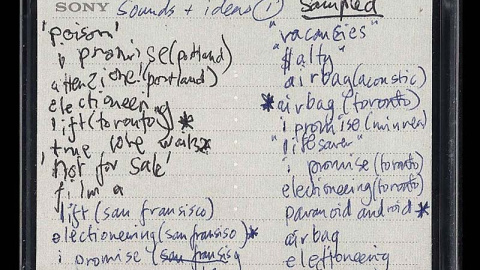 SONY Sounds + ideas ① Sampled
'poison'
i promise (portland)
attenzione! (portland)
electioneering
lift (toronto) *
true love waits *
'not for sale'
f. im a
lift (san fransisco)
electioneering (san fransiso) *
i promise (san fransisq
"vacancies"
"$alty"
airbag (acoustic)
* airbag (toronto)
i promise (minnea
"lifesaver"
i promise (toronto)
electioneering (toronto)
paranoid android *
airbag
electioneering